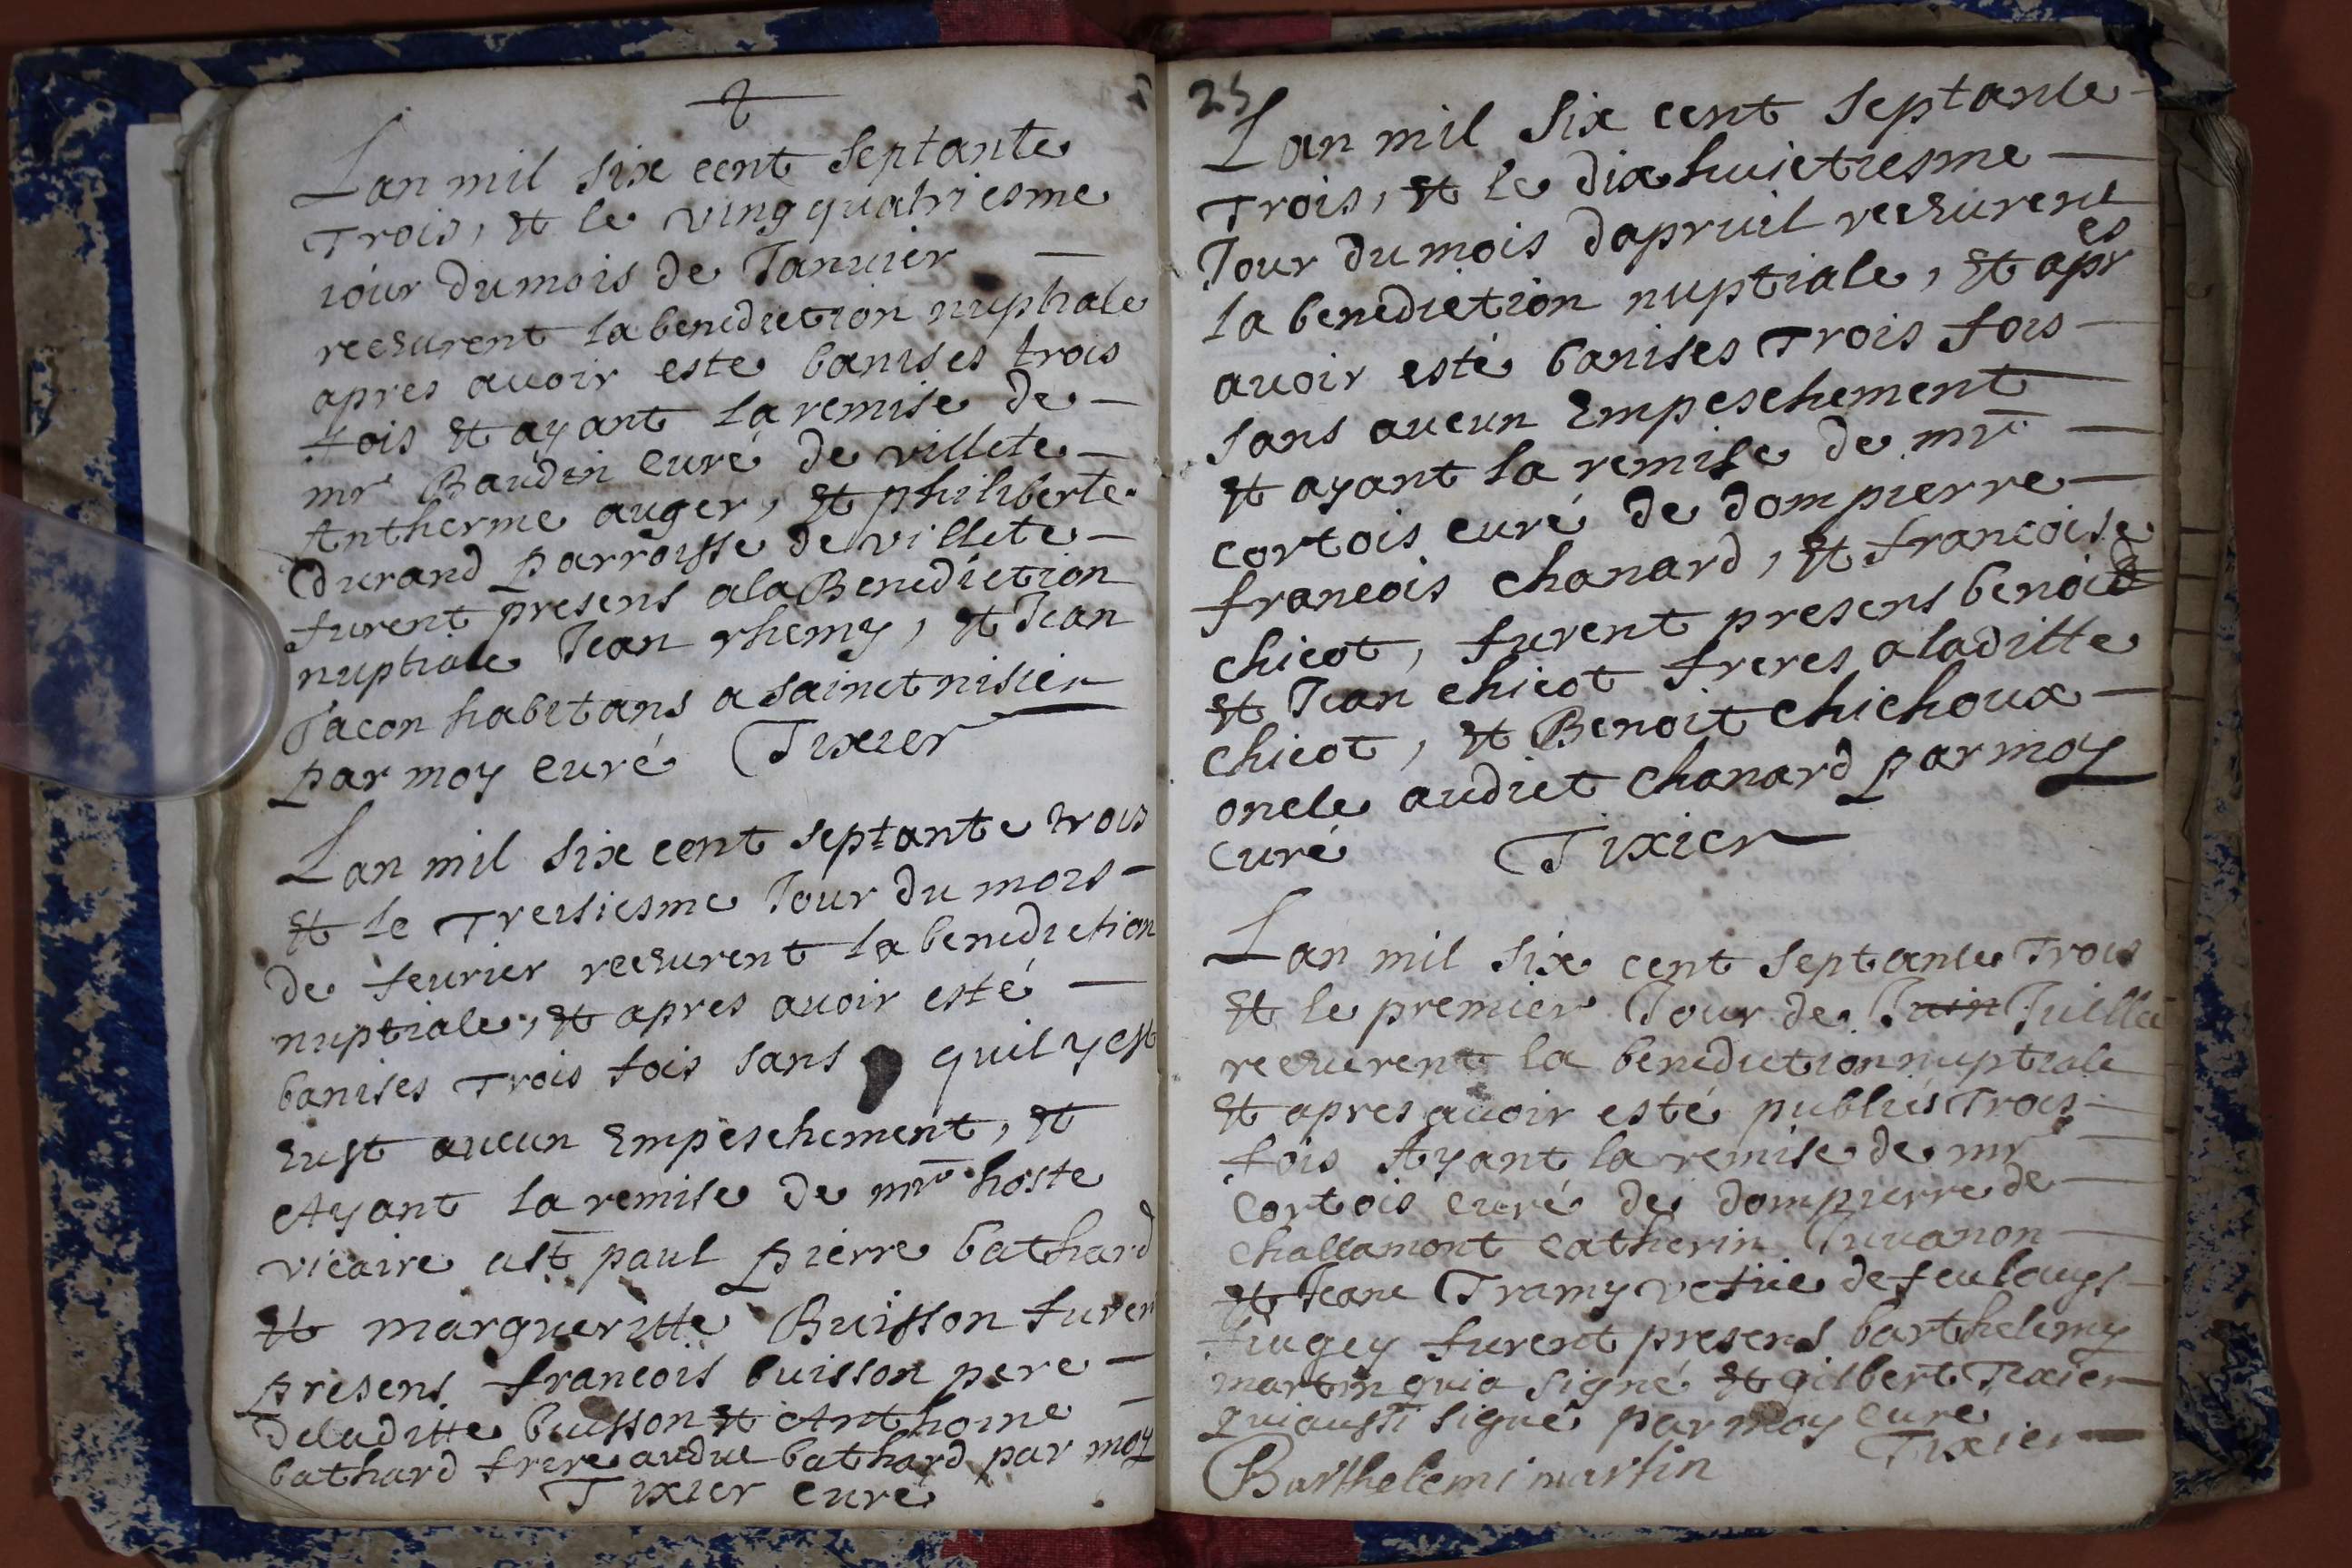 Lan mil six cent septante
trois, et le vingquatriesme
iour du mois de Januier
receurent la benediction nuptiale
apres auoir este banises trois
fois et ayant la remise de
mr Baudin curé de villete
Antherme auger, et philiberte
durand parroisse de villete
furent presens a la Benediction
nuptiale Jean rhemy, et Jean
Jacon habitans a sainct nisier
par moy curé Tixier
Lan mil six cent septante trois
et le Treisiesme Jour du mois
de feurier receurent la benediction
nuptiale, et apres auoir esté
banises Trois fois sans quil y est
eust aucun empeschement, et
Ayant la remise de mre hoste
vicaire a st paul pierre bathard
et margueritte Buisson furen
presens francois buisson pere
de laditte buisson et Anthoine
bathard frere audic bathard par moy
Tixier curé
25
Lan mil six cent septante
Trois, et le dixhuictiesme
Jour du mois dapruil receurent
la benediction nuptiale, et apres
auoir esté banises Trois fois
sans aucun empeschement
et ayant la remise de mre
cortois curé de dompierre
francois chanard, et francoise
chicot, furent presens benoid
et Jean chicot freres a laditte
chicot, et Benoit chichoux
oncle audict chanard par moy
curé Tixier
Lan mil six cent septante Trois
et le premier Jour de Juin Juillet
receurent la benediction nuptiale
et apres auoir esté publiés Trois
fois Ayant la remise de mr
cortois curé de dompierre de
challamont catherin Juuanon
et Jeane Tramy vefue de feu louys
fugey furent presens barthelemy
martin qui a signé et gilbert Tixier
qui aussi signé par moy curé
Tixier
Barthelemi martin